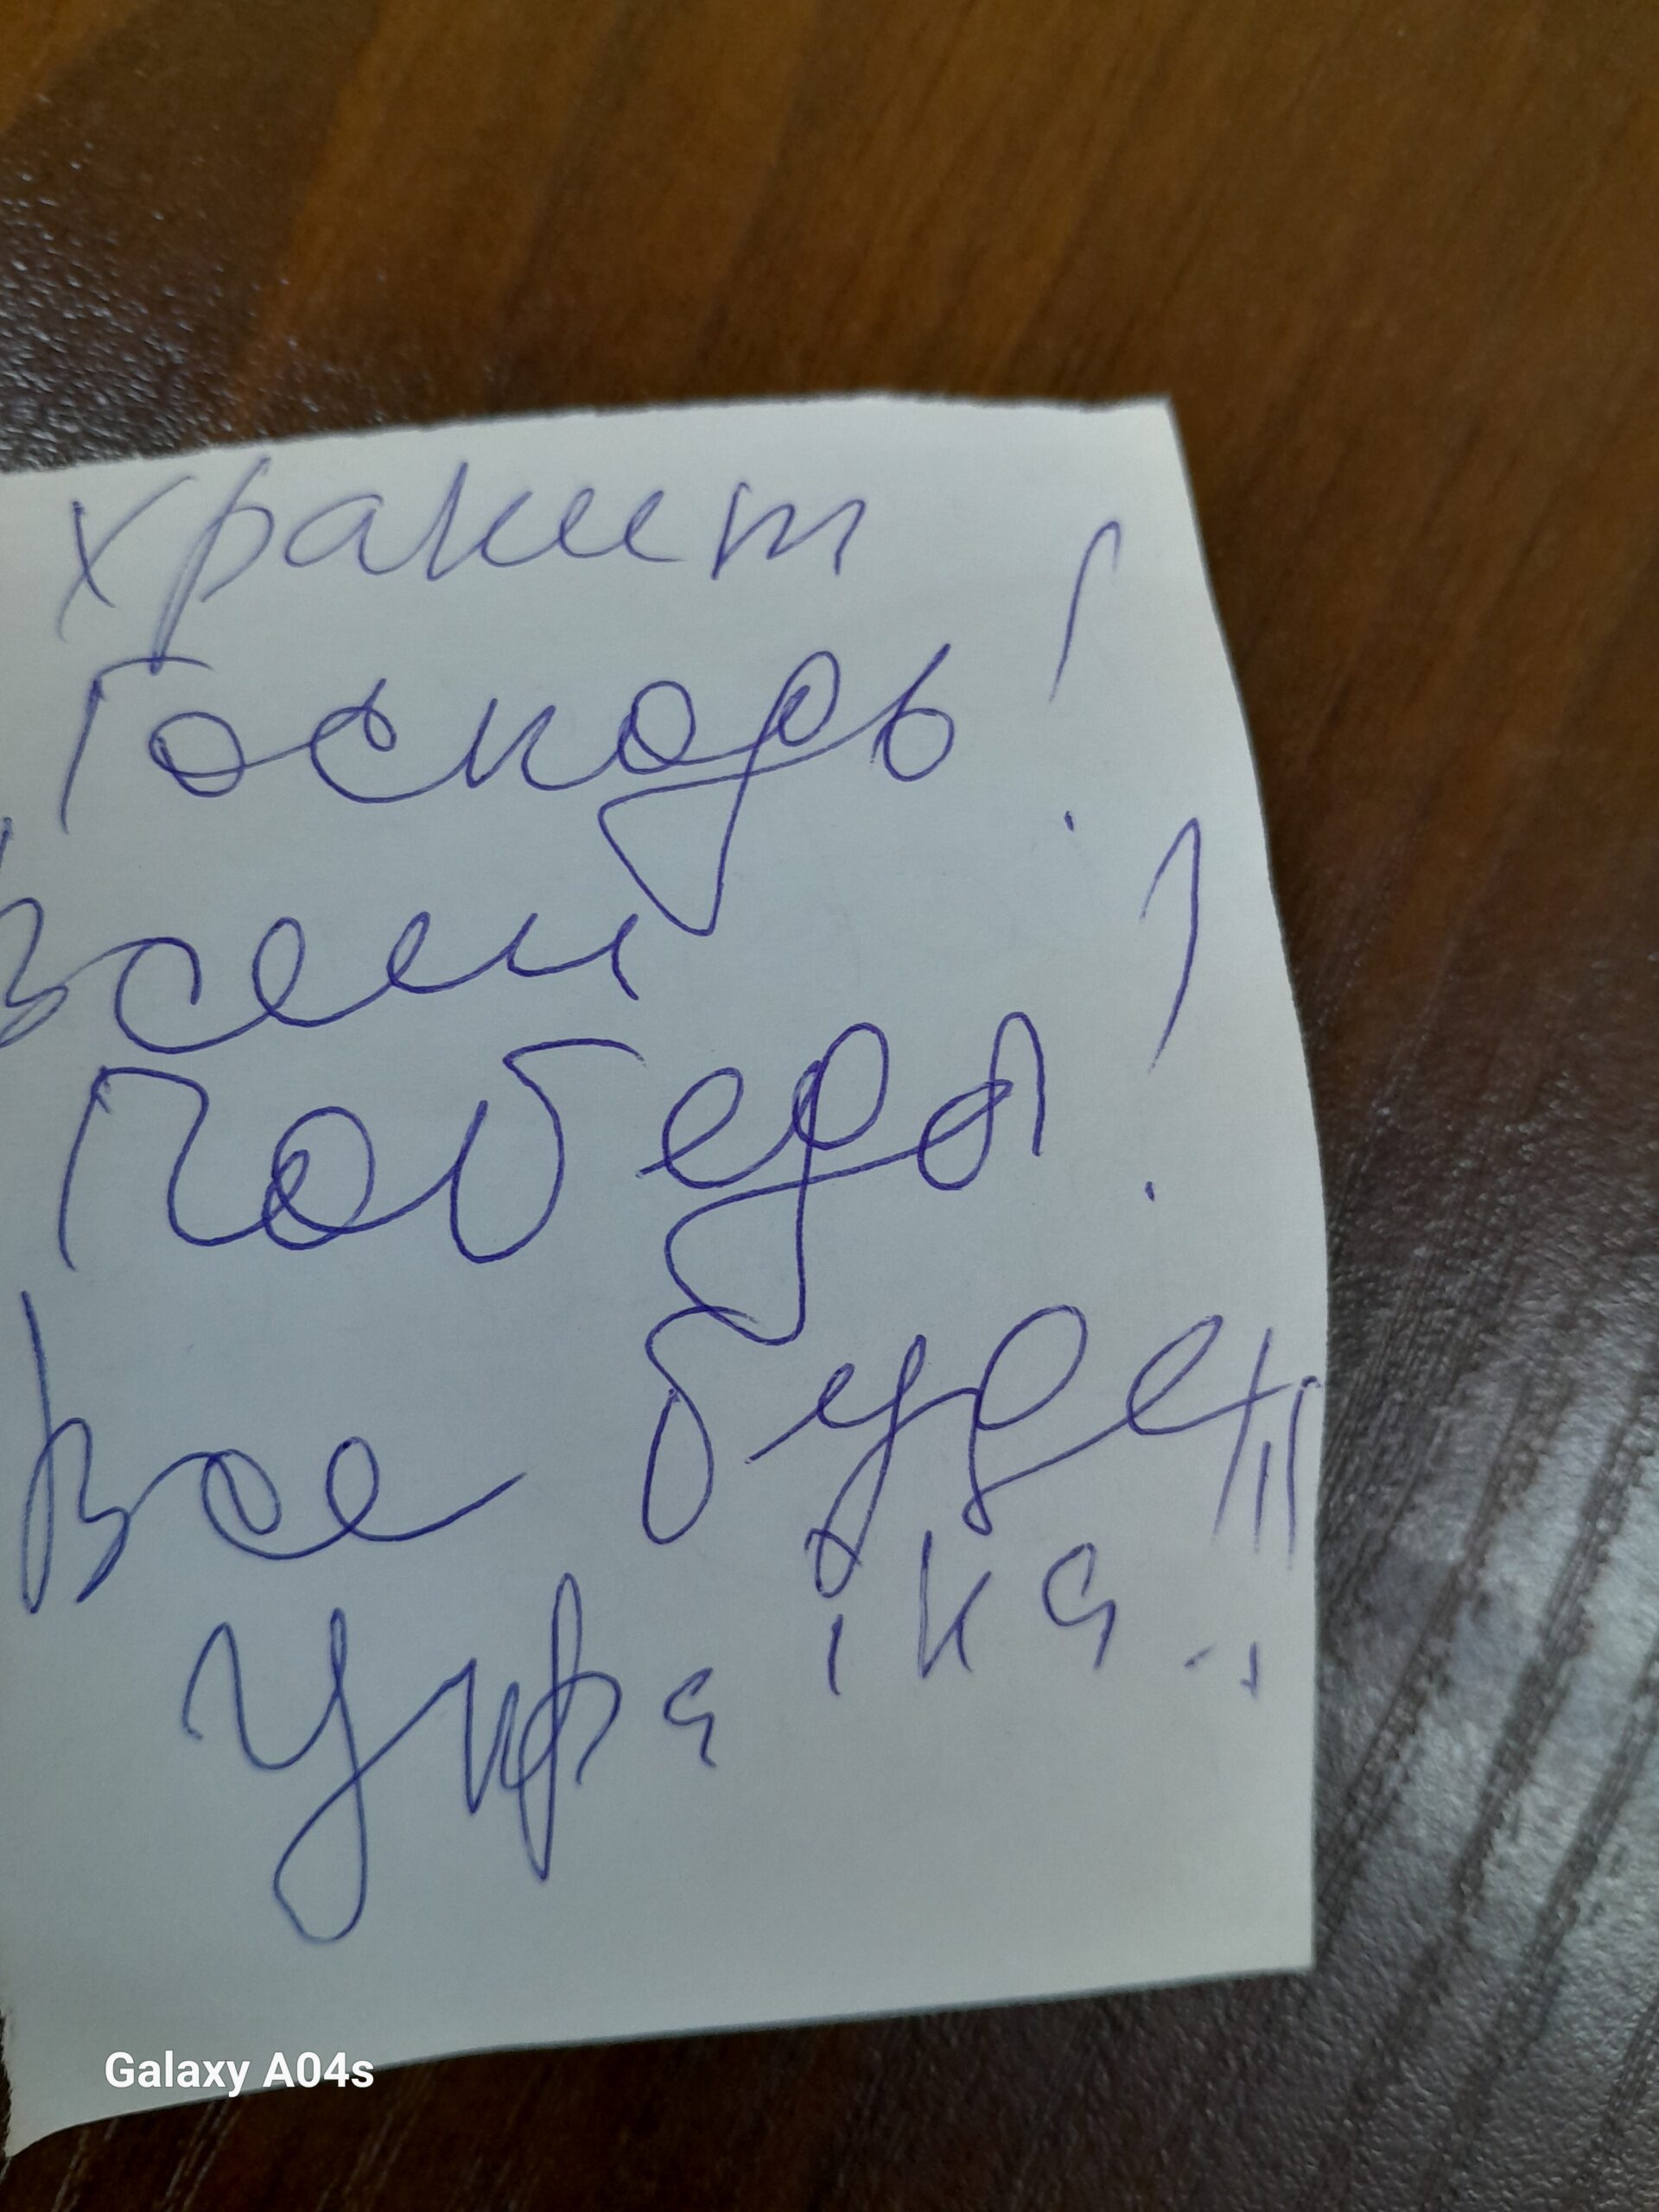 хранит
Господь!
Всем
Победы!
Все будет!!
Украiна..,
Galaxy A04s